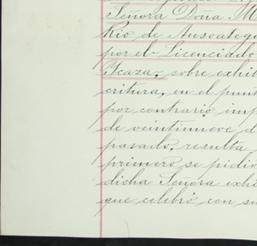 Señora Doña M
Rio de Ansoateg
por el Licenciado
Icaza, sobre exhi
critura, en el pun
por contrario imp
de veintinueve d
pasado, resulta
primero se pidio
dicha Señora exhi
que celebró con su